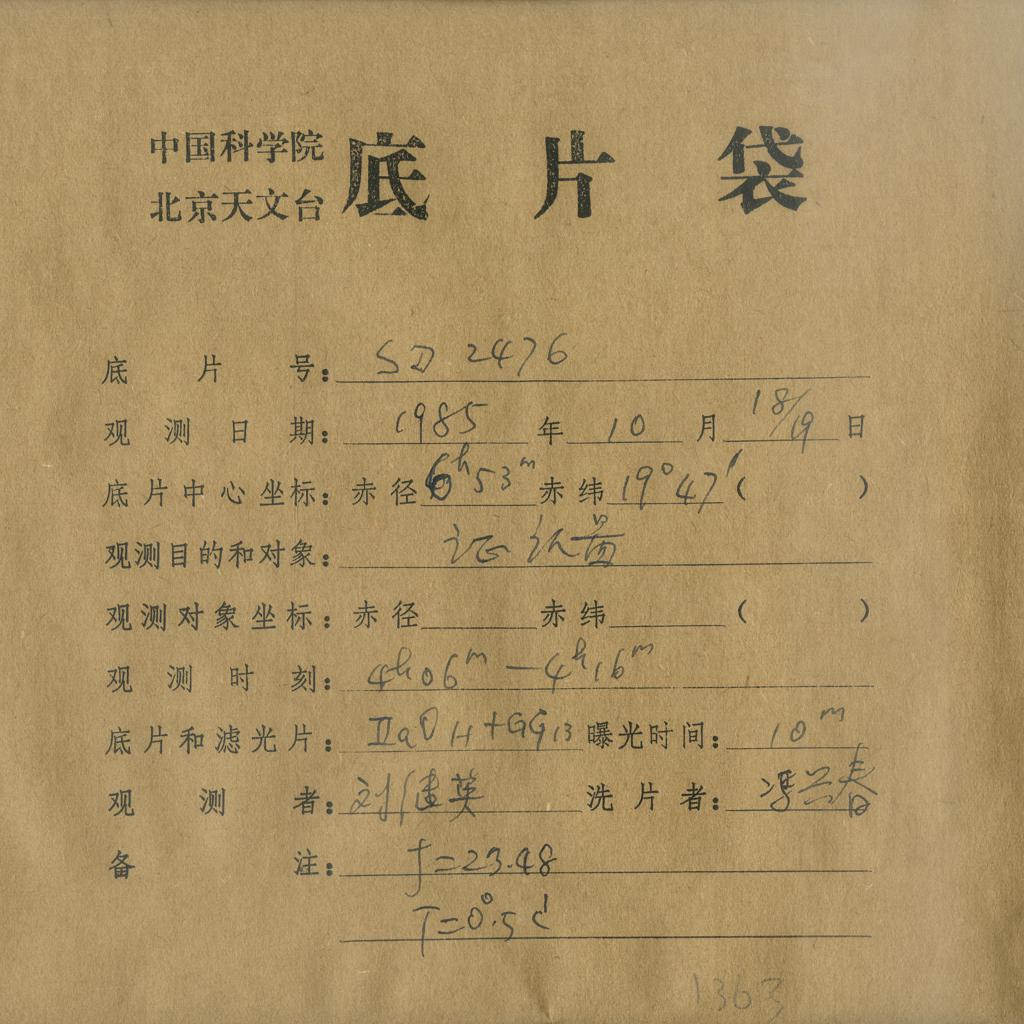 中国科学院
北京天文台
底片袋
底片号：SD 2476
观测日期：1985年10月18/19日
底片中心坐标：赤径6h53m赤纬19°47′（ ）
观测目的和对象：证认
观测对象坐标：赤径 赤纬 （ ）
观测时刻：4h06m—4h16m
底片和滤光片：ⅡaO H+GG13 曝光时间：10m
观测者：刘佳英 洗片者：冯兰春
备注：f=23.48
T=0°.5 C
1363